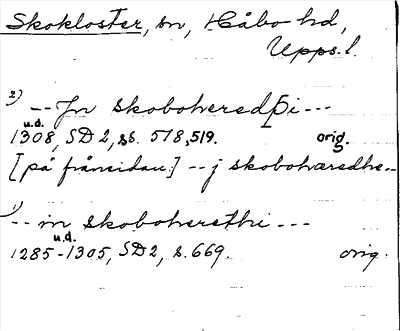 Skokloster, sn, Håbo hd,
Upps. l.
2) -- Jn skoboheredþi ---
u.d.
1308, SD 2, s. 518, 519. orig.
[på frånsidan:] -- j skobohæredhe --
1) -- in skoboherethi ---
u.d.
1285-1305, SD 2, s. 669. orig.